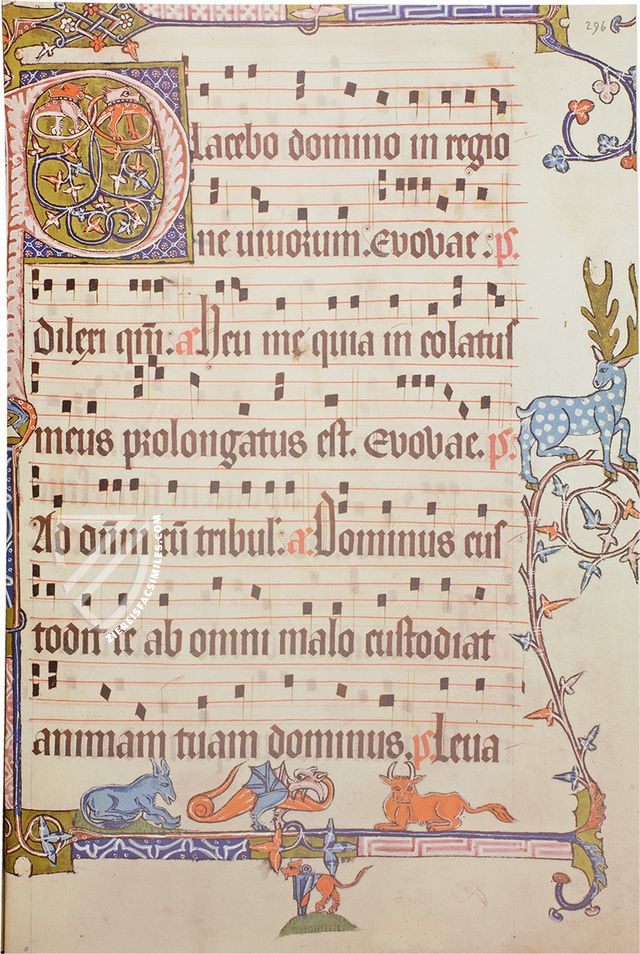 296
Placebo domino in regio
ne uiuorum. Evovae. ps.
Dilexi qm̄. a. Heu me quia in colatus
meus prolongatus est. Evovae. ps.
Ad dn̄m cū tribul. a. Dominus cus
todit te ab omni malo custodiat
animam tuam dominus. ps Leua
ZIEREISFACSIMILES.COM